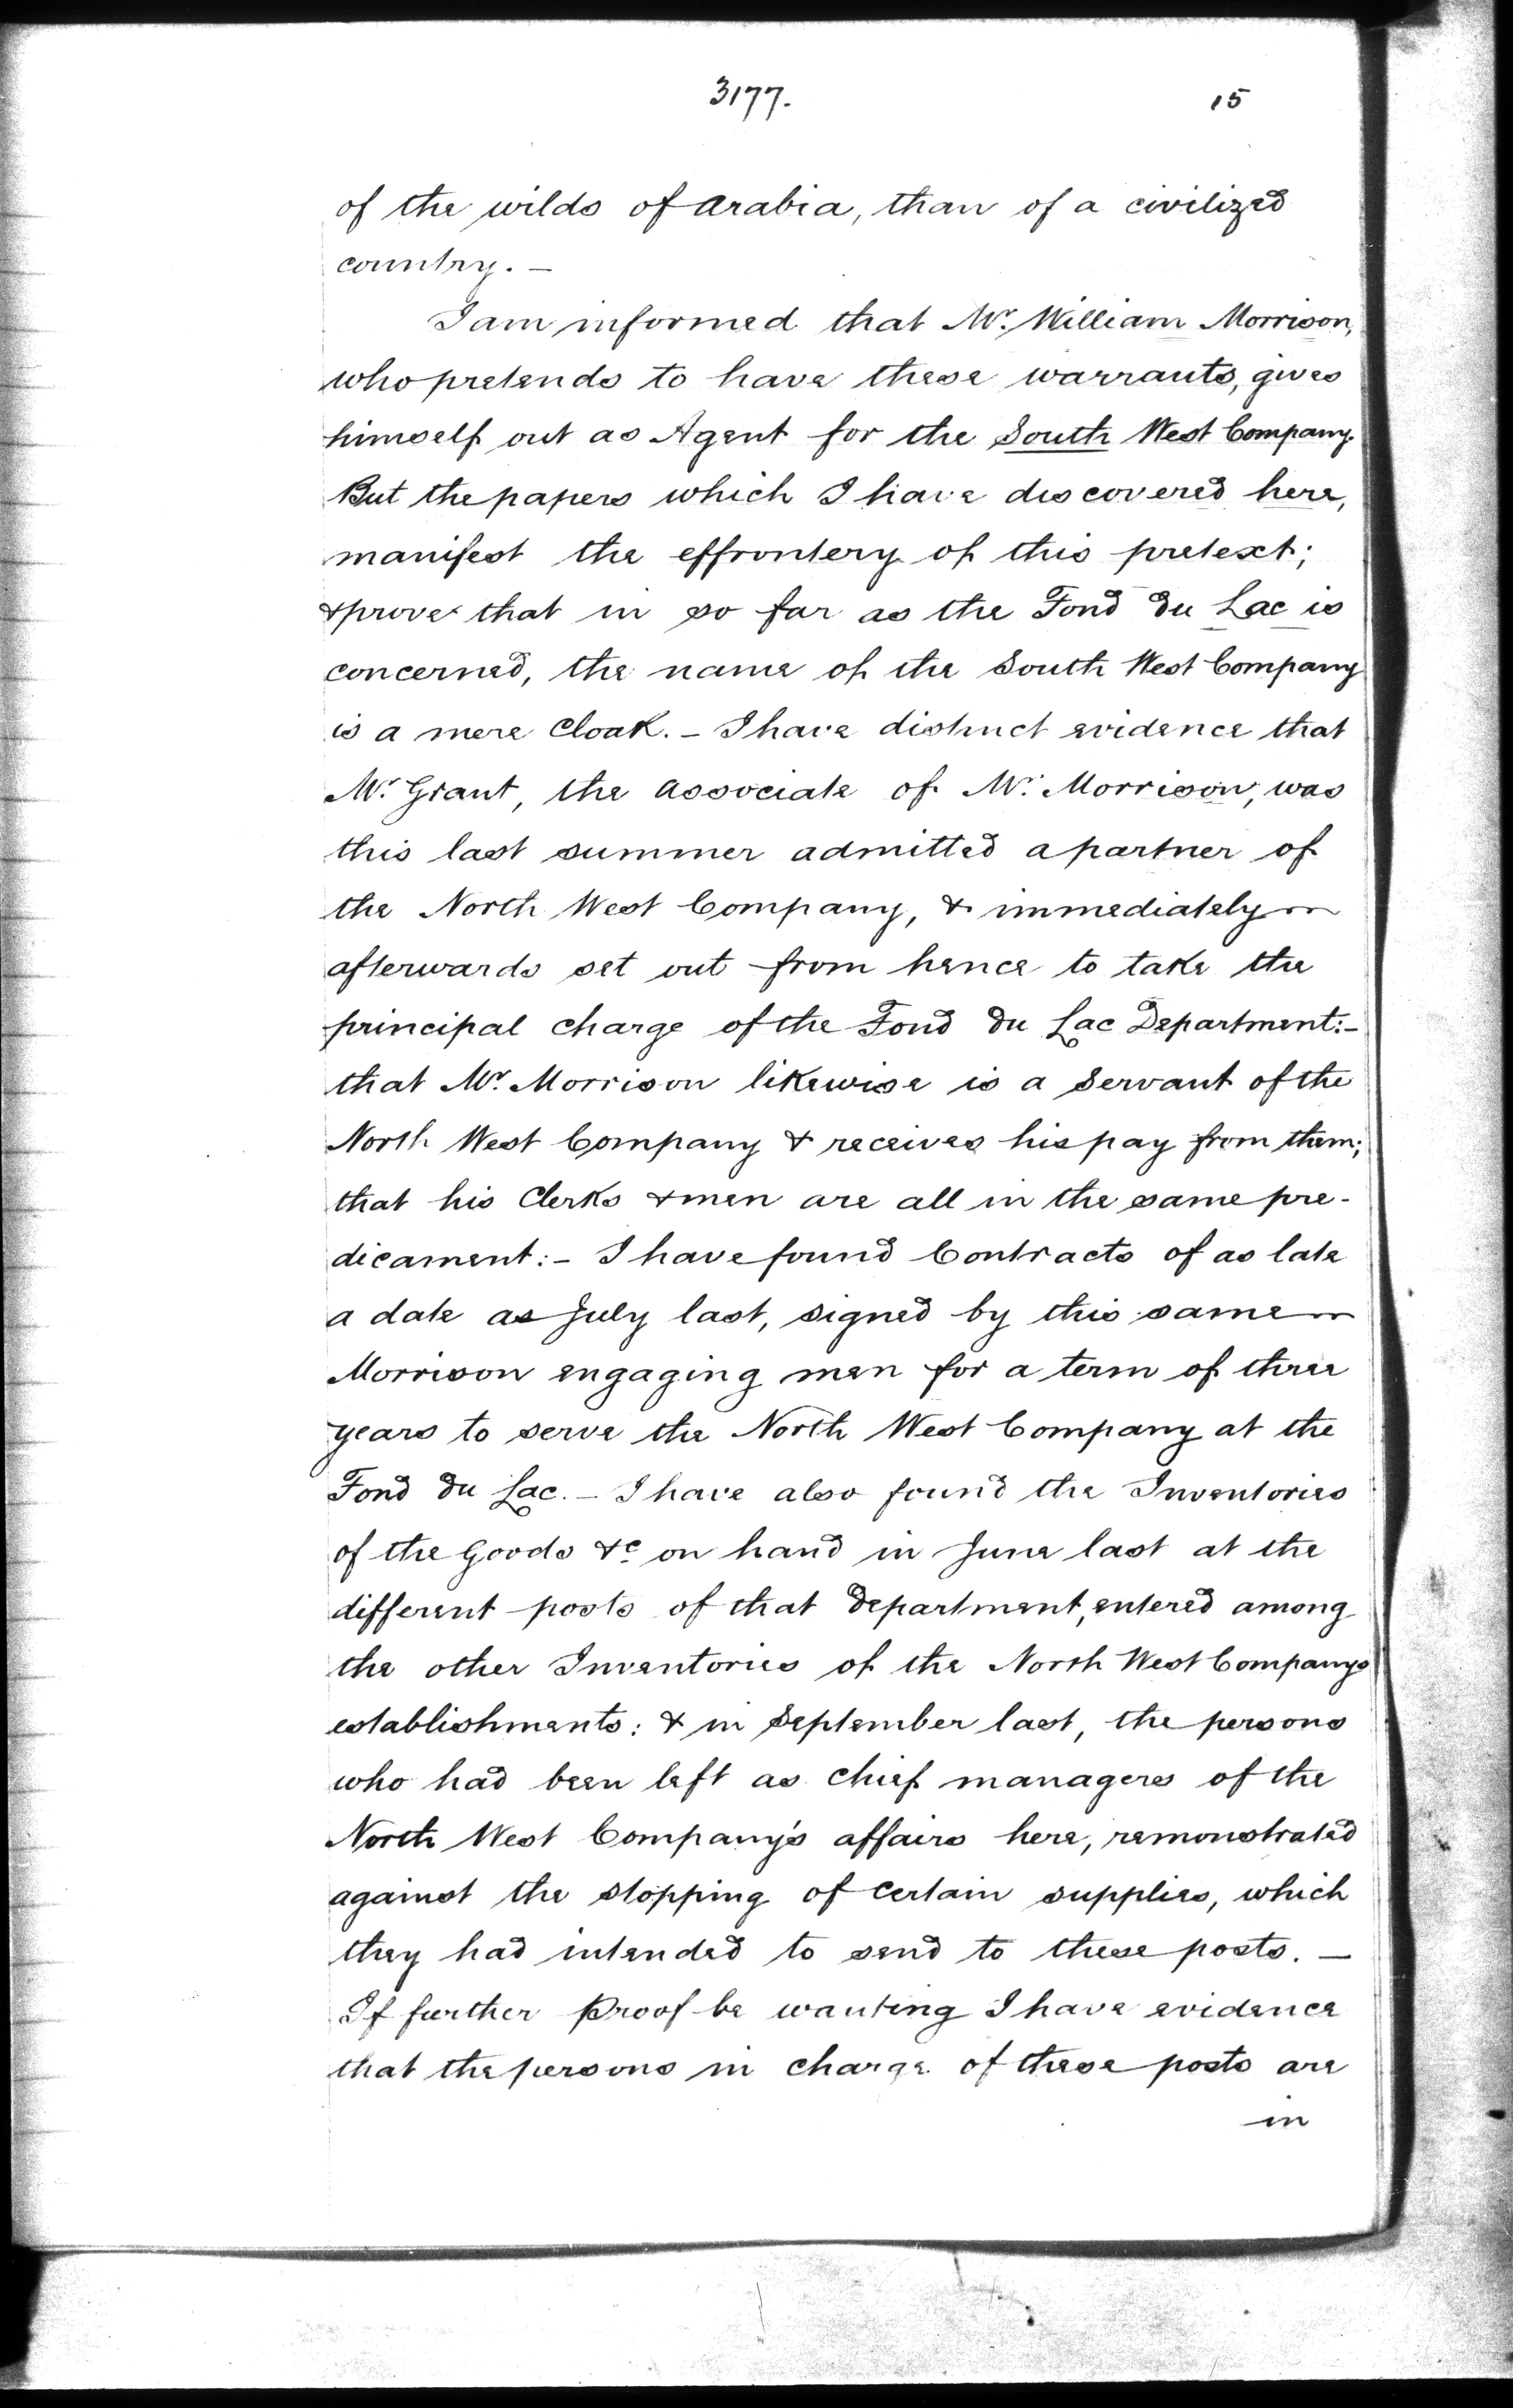 3177. 15
of the wilds of Arabia, than of a civilized
country. –
I am informed that Mr. William Morrison,
who pretends to have these warrants, gives
himself out as Agent for the South West Company.
But the papers which I have discovered here,
manifest the effrontery of this pretext;
& prove that in so far as the Fond du Lac is
concerned, the name of the South West Company
is a mere Cloak. – I have distinct evidence that
Mr. Grant, the associate of Mr. Morrison, was
this last summer admitted a partner of
the North West Company, & immediately
afterwards set out from hence to take the
principal charge of the Fond du Lac Department:–
that Mr. Morrison likewise is a Servant of the
North West Company & receives his pay from them;
that his Clerks & men are all in the same pre-
dicament:– I have found Contracts of as late
a date as July last, signed by this same
Morrison engaging men for a term of three
years to serve the North West Company at the
Fond du Lac. – I have also found the Inventories
of the Goods &c on hand in June last at the
different posts of that Department, entered among
the other Inventories of the North West Companys
establishments: & in September last, the persons
who had been left as Chief managers of the
North West Company's affairs here, remonstrated
against the stopping of certain supplies, which
they had intended to send to these posts. –
If further Proof be wanting I have evidence
that the persons in charge of these posts are
in